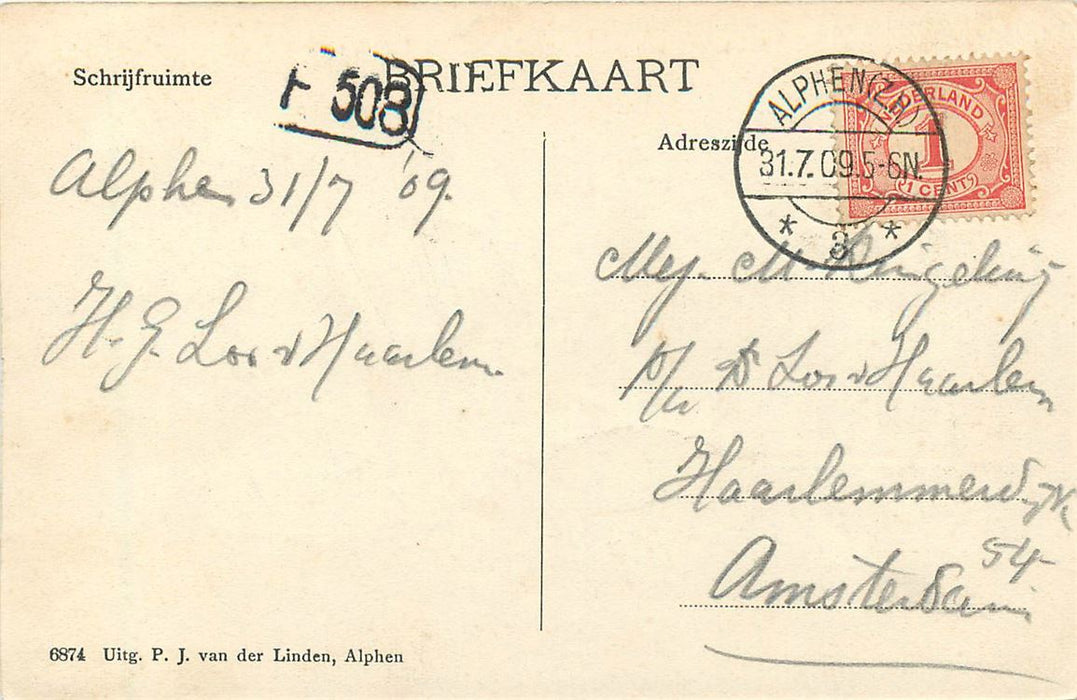 Schrijfruimte
BRIEFKAART
508
Adreszijde
ALPHEN (Z.H)
31.7.09.5-6N.
* 3 *
NEDERLAND
1
1 CENT
Alphen 31/7 '09.
H. G. Loos v Haarlem.
Mej. M.
p/a Loos v Haarlem
Haarlemmerdijk
54
Amsterdam
6874 Uitg. P. J. van der Linden, Alphen